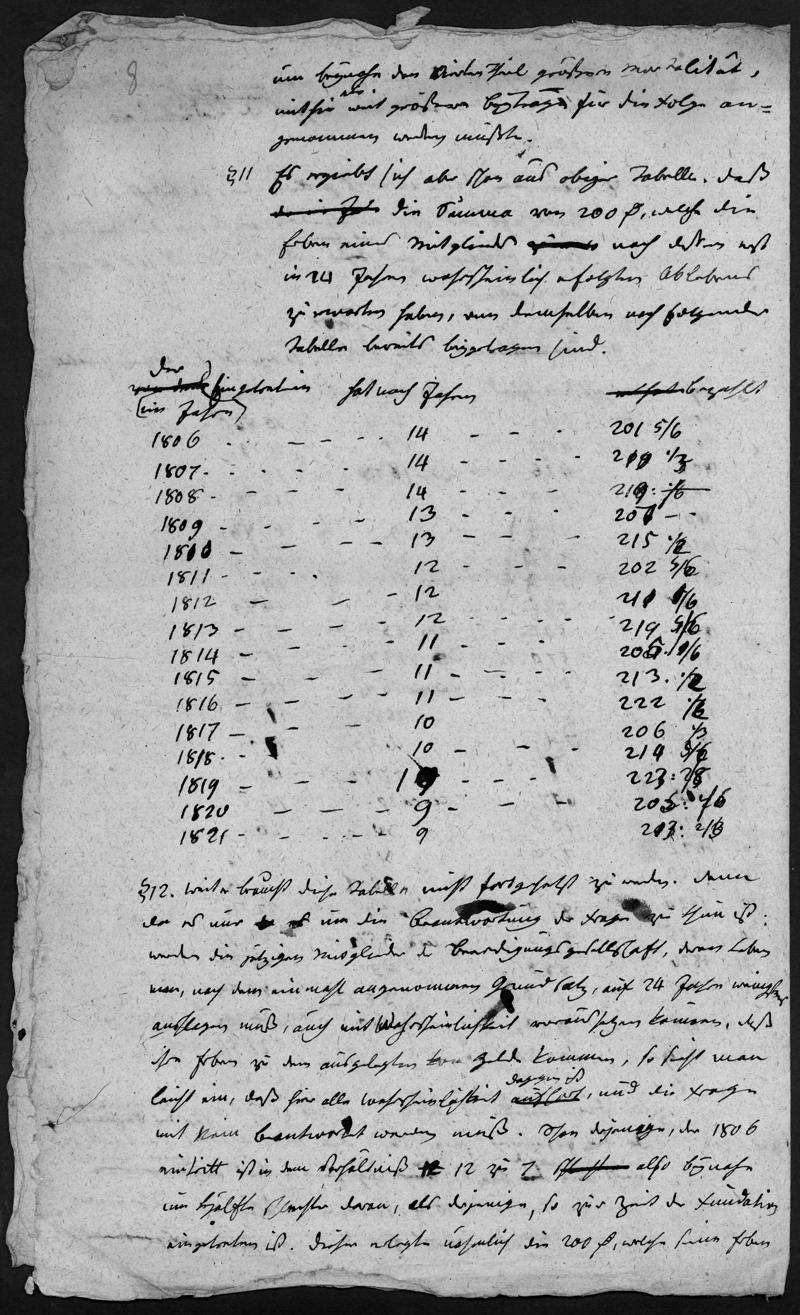 8
um beynahe den vierten Theil größern Mortalität,
mithin ein weit größerer Beytrag für die Folge an=
genommen werden müßte.
§11 Es ergiebt sich aber schon aus obiger Tabelle, daß
die Summa von 200 ₰, welche die
Erben eines Mitgliedes nach dessen erst
in 24 Jahren wahrscheinlich erfolgten Ablebens
zu erwarten haben, von demselben nach folgender
Tabelle bereits beygetragen sind.
der
Eingetretene hat nach Jahren bezahlt
(im Jahre)
1806 - - - - 14 - - - 201 5/6
1807 - - - - 14 - - - 210 1/3
1808 - - - - 14 - - - 219
1809 - - - - 13 - - - 207 - -
1810 - - - - 13 - - - 215 1/2
1811 - - - 12 - - - 202 5/6
1812 - - - 12 211 1/6
1813 - - - - 12 - - - 219 5/6
1814 - - - 11 - - - 205
1815 - - - 11 - - - 213 1/2
1816 - - - 11 - - - 222
1817 - - - 10 206 1/3
1818 - - 10 - - - 214 5/6
1819 - - - - 10 - - - 223
1820 - - - - 9 - - - 205
1821 - - - - 9 213
§12. Weiter braucht diese Tabelle nicht fortgesetzt zu werden. Denn
da es nur um die Beantwortung der Frage zu thun ist:
werden die jetzigen Mitglieder der Beerdigungsgesellschaft, deren Leben
man, nach dem einmahl angenommenen Grundsatz, auf 24 Jahre wenigstens
anschlagen muß, auch mit Wahrscheinlichkeit voraussetzen können, daß
ihre Erben zu dem ausgelegten Gelde kommen, so sieht man
leicht ein, daß hier alle Wahrscheinlichkeit dagegen ist, und die Frage
mit Nein beantwortet werden muß. Schon derjenige, der 1806
eintritt ist in dem Verhältniß 12 zu 7 also beynahe
um Hälfte schlechter daran, als derjenige, so zur Zeit der Fundation
eingetreten ist. Dieser erlegte nähmlich die 200 ₰, welche seine Erben